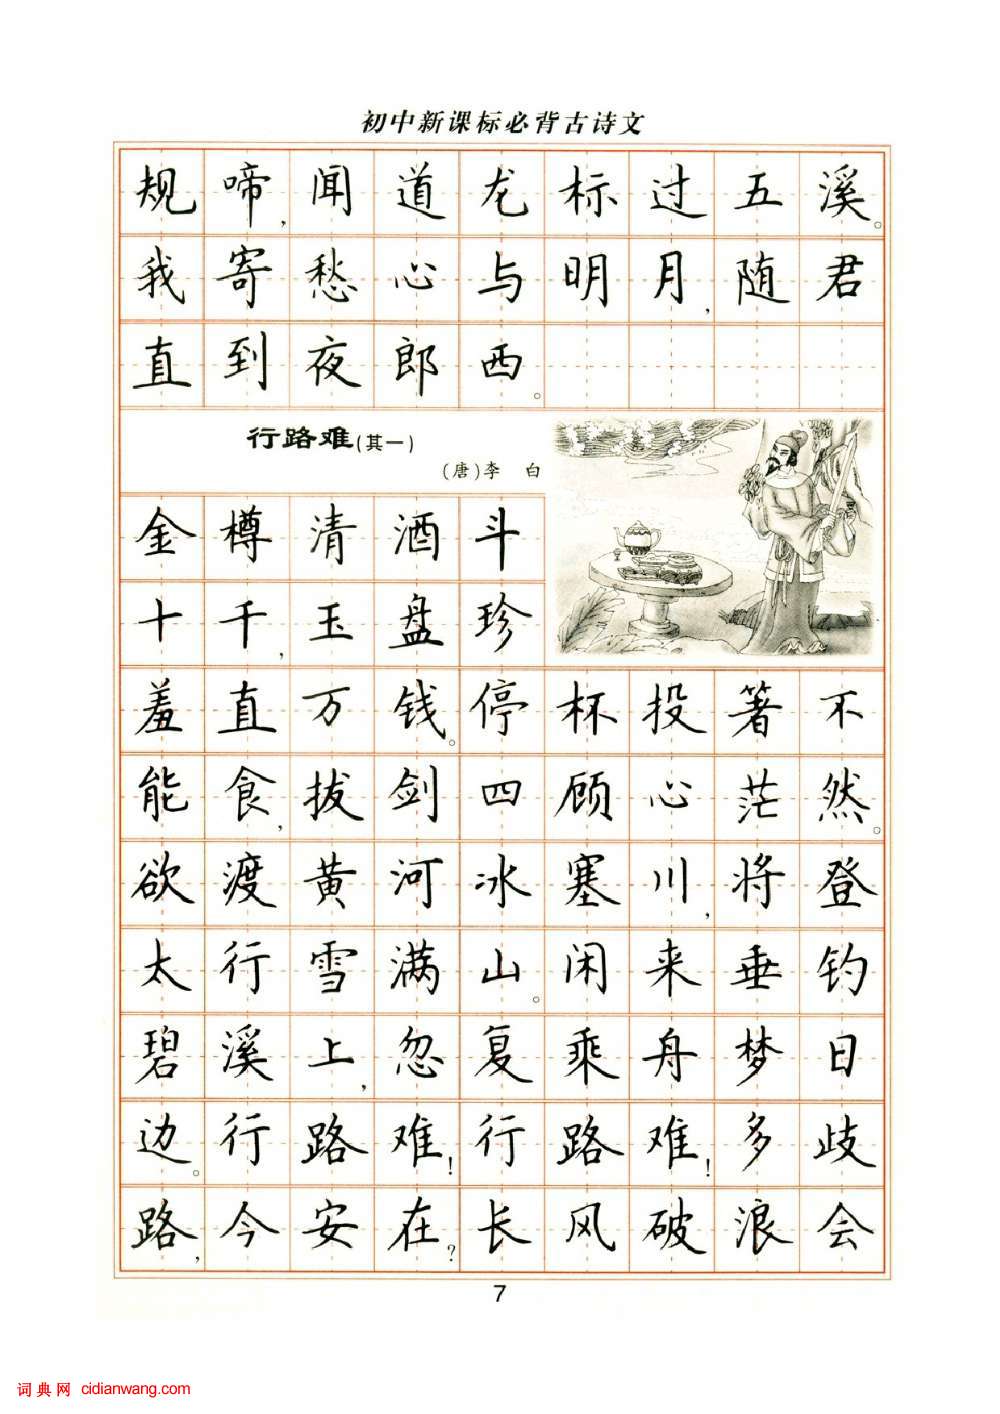 初中新课标必背古诗文
规啼,闻道龙标过五溪。
我寄愁心与明月,随君
直到夜郎西。
行路难(其一)
(唐)李 白
金樽清酒斗
十千,玉盘珍
羞直万钱。停杯投箸不
能食,拔剑四顾心茫然。
欲渡黄河冰塞川,将登
太行雪满山。闲来垂钓
碧溪上,忽复乘舟梦日
边。行路难!行路难!多歧
路,今安在?长风破浪会
7
词典网 cidianwang.com